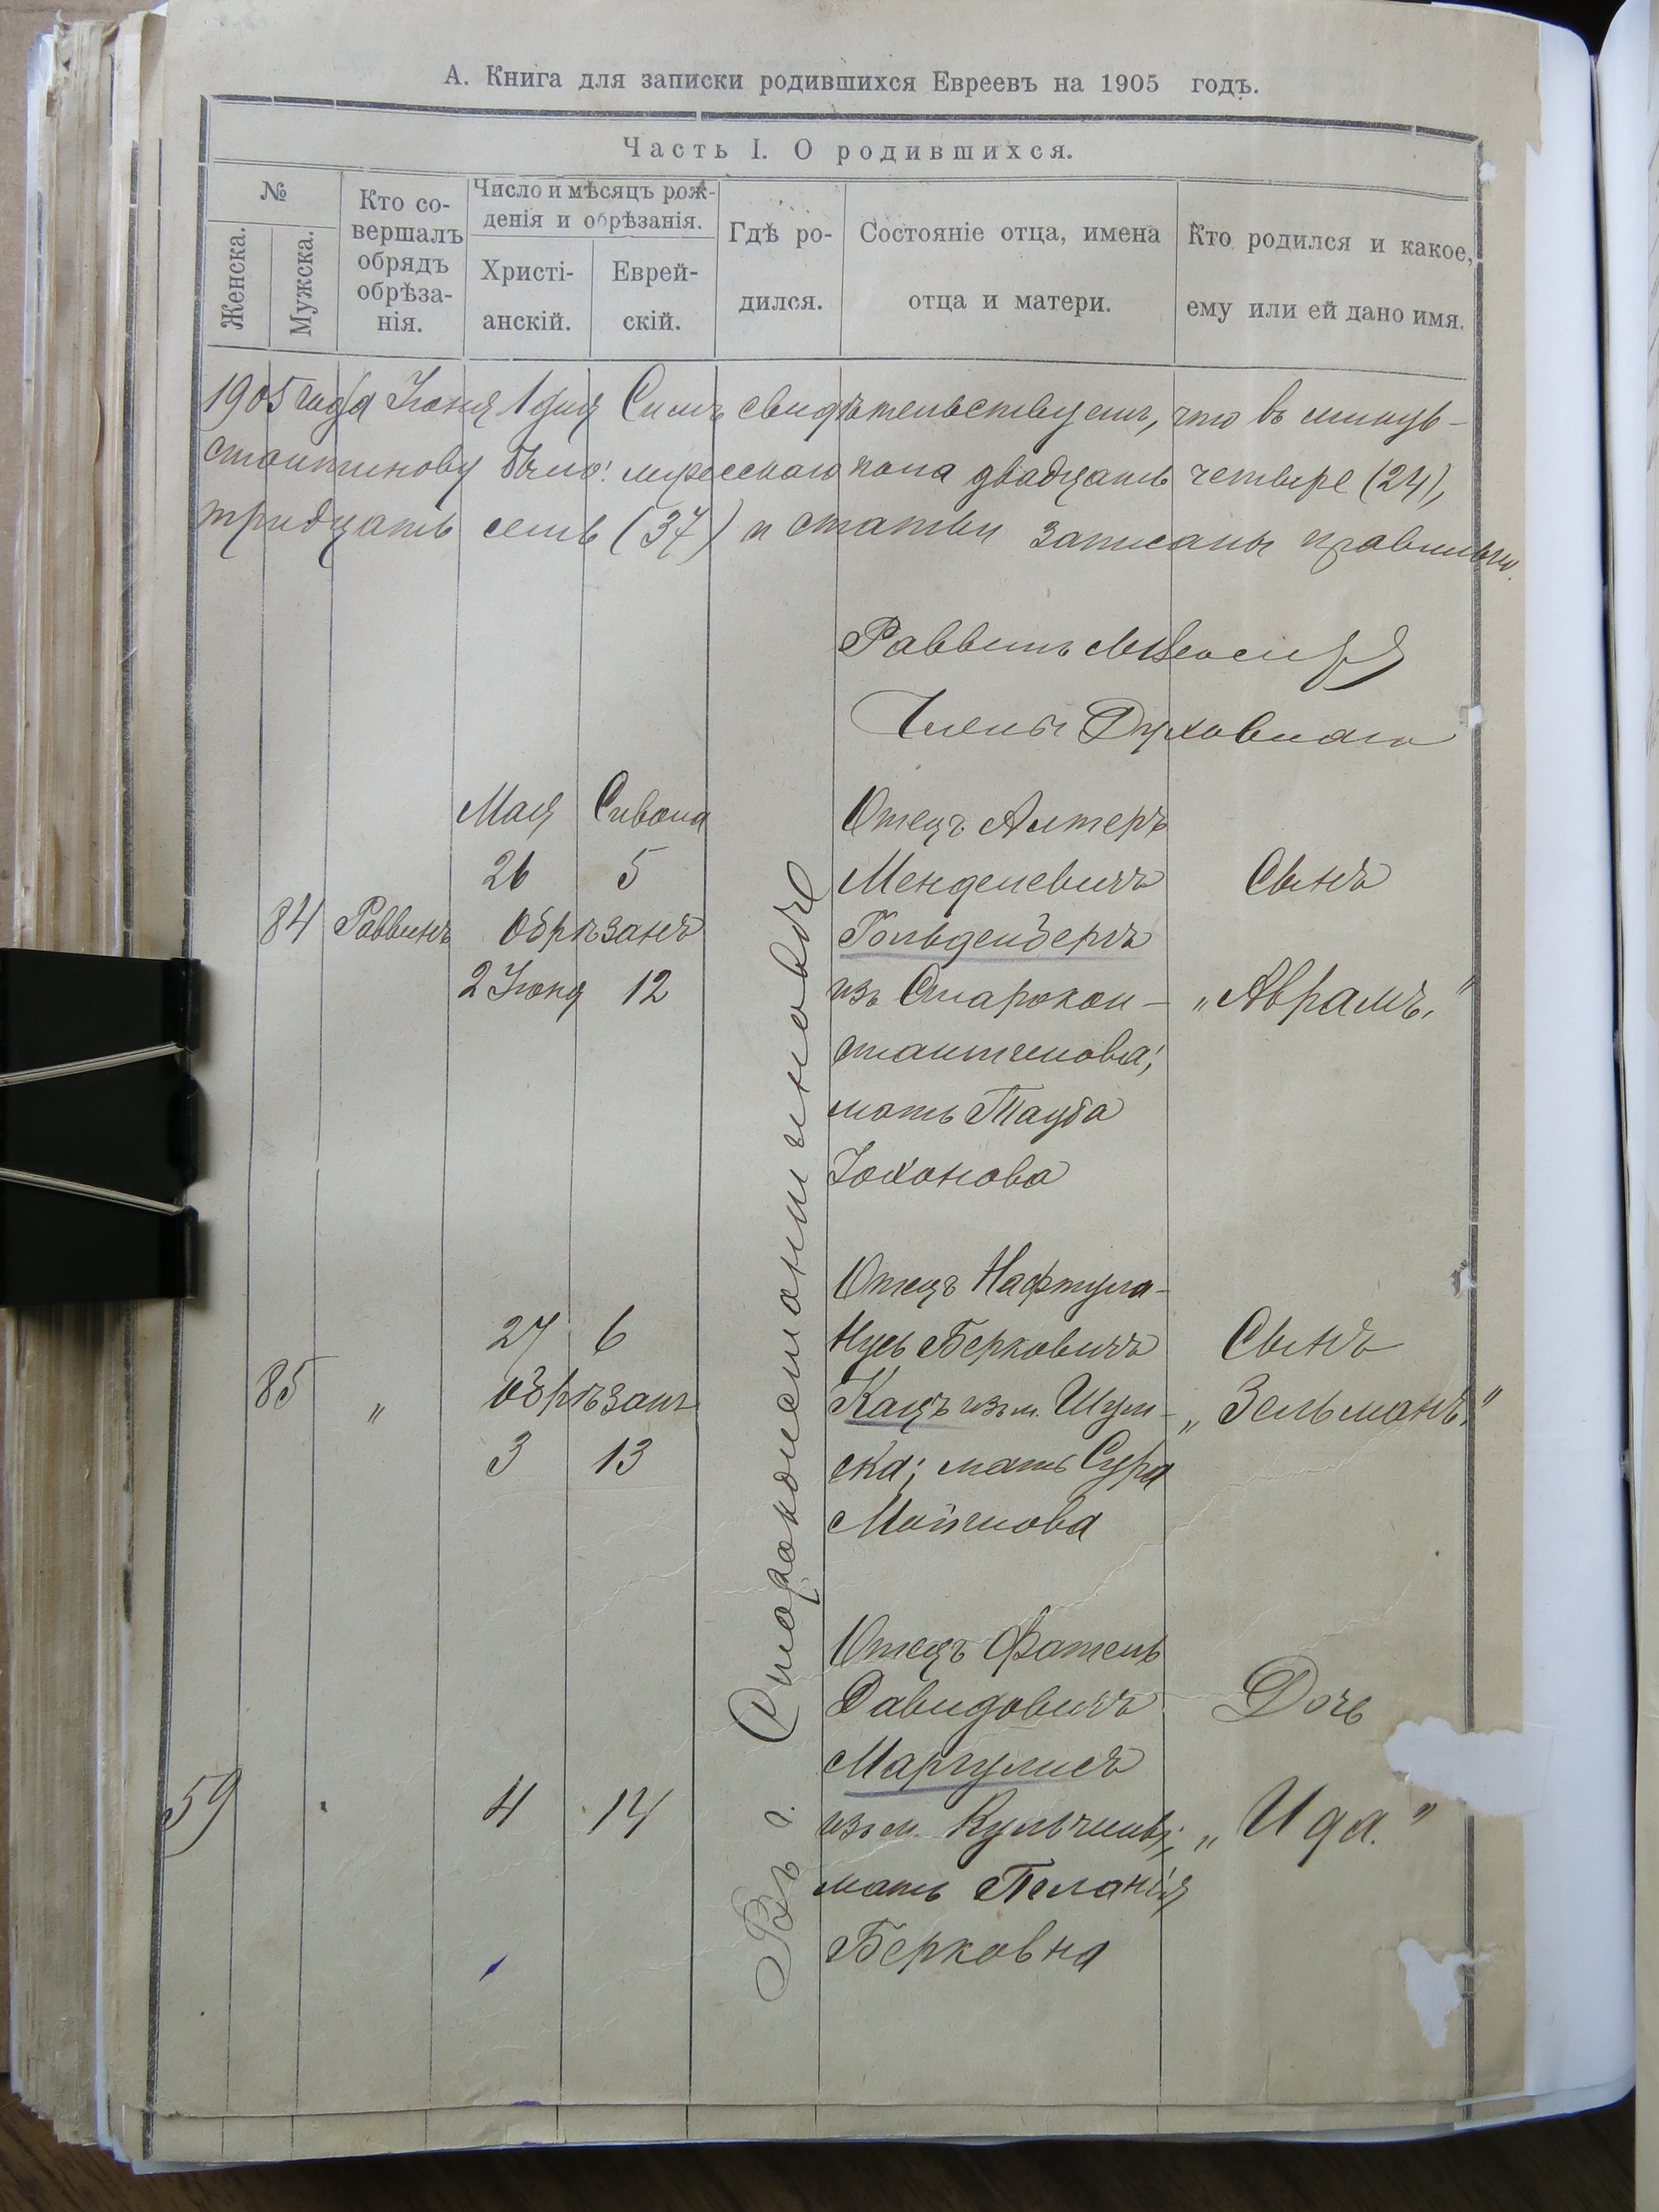 А. Книга для записки родившихся Евреевъ на 1905 годъ.
Часть I. О родившихся.
№
Женска.
Мужска.
Кто со-
вершалъ
обрядъ
обрѣза-
нія.
Число и мѣсяцъ рож-
денія и обрѣзанія.
Христі-
анскій.
Еврей-
скій.
Гдѣ ро-
дился.
Состояніе отца, имена
отца и матери.
Кто родился и какое,
ему или ей дано имя.
1905 года Іюня 1 дня Симъ свидѣтельствуемъ, что въ минув-
стантинову было: мужескаго пола двадцать четыре (24),
тридцать семь (37) и статьи записаны правильно.
Раввинъ
Члены Духовнаго
Въ г. Староконстантиновѣ
Мая Сивона
26 5
84 Раввинъ Обрѣзанъ
2 Іюня 12
Отецъ Алтеръ
Менделевичъ
Гольденбергъ
изъ Старокон-
стантинова;
мать Тауба
Іохонова
Сынъ
„Аврамъ."
27 6
85 „ обрѣзанъ
3 13
Отецъ Нафтула-
Нусь Берковичъ
Кацъ изъ м. Шум-
ска; мать Сура
Мойшова
Сынъ
„Зельманъ."
59 4 14
Отецъ Фатель
Давидовичъ
Маргулисъ
изъ м. Кульчинъ;
мать Пеланія
Берковна
Дочь
„Ида."